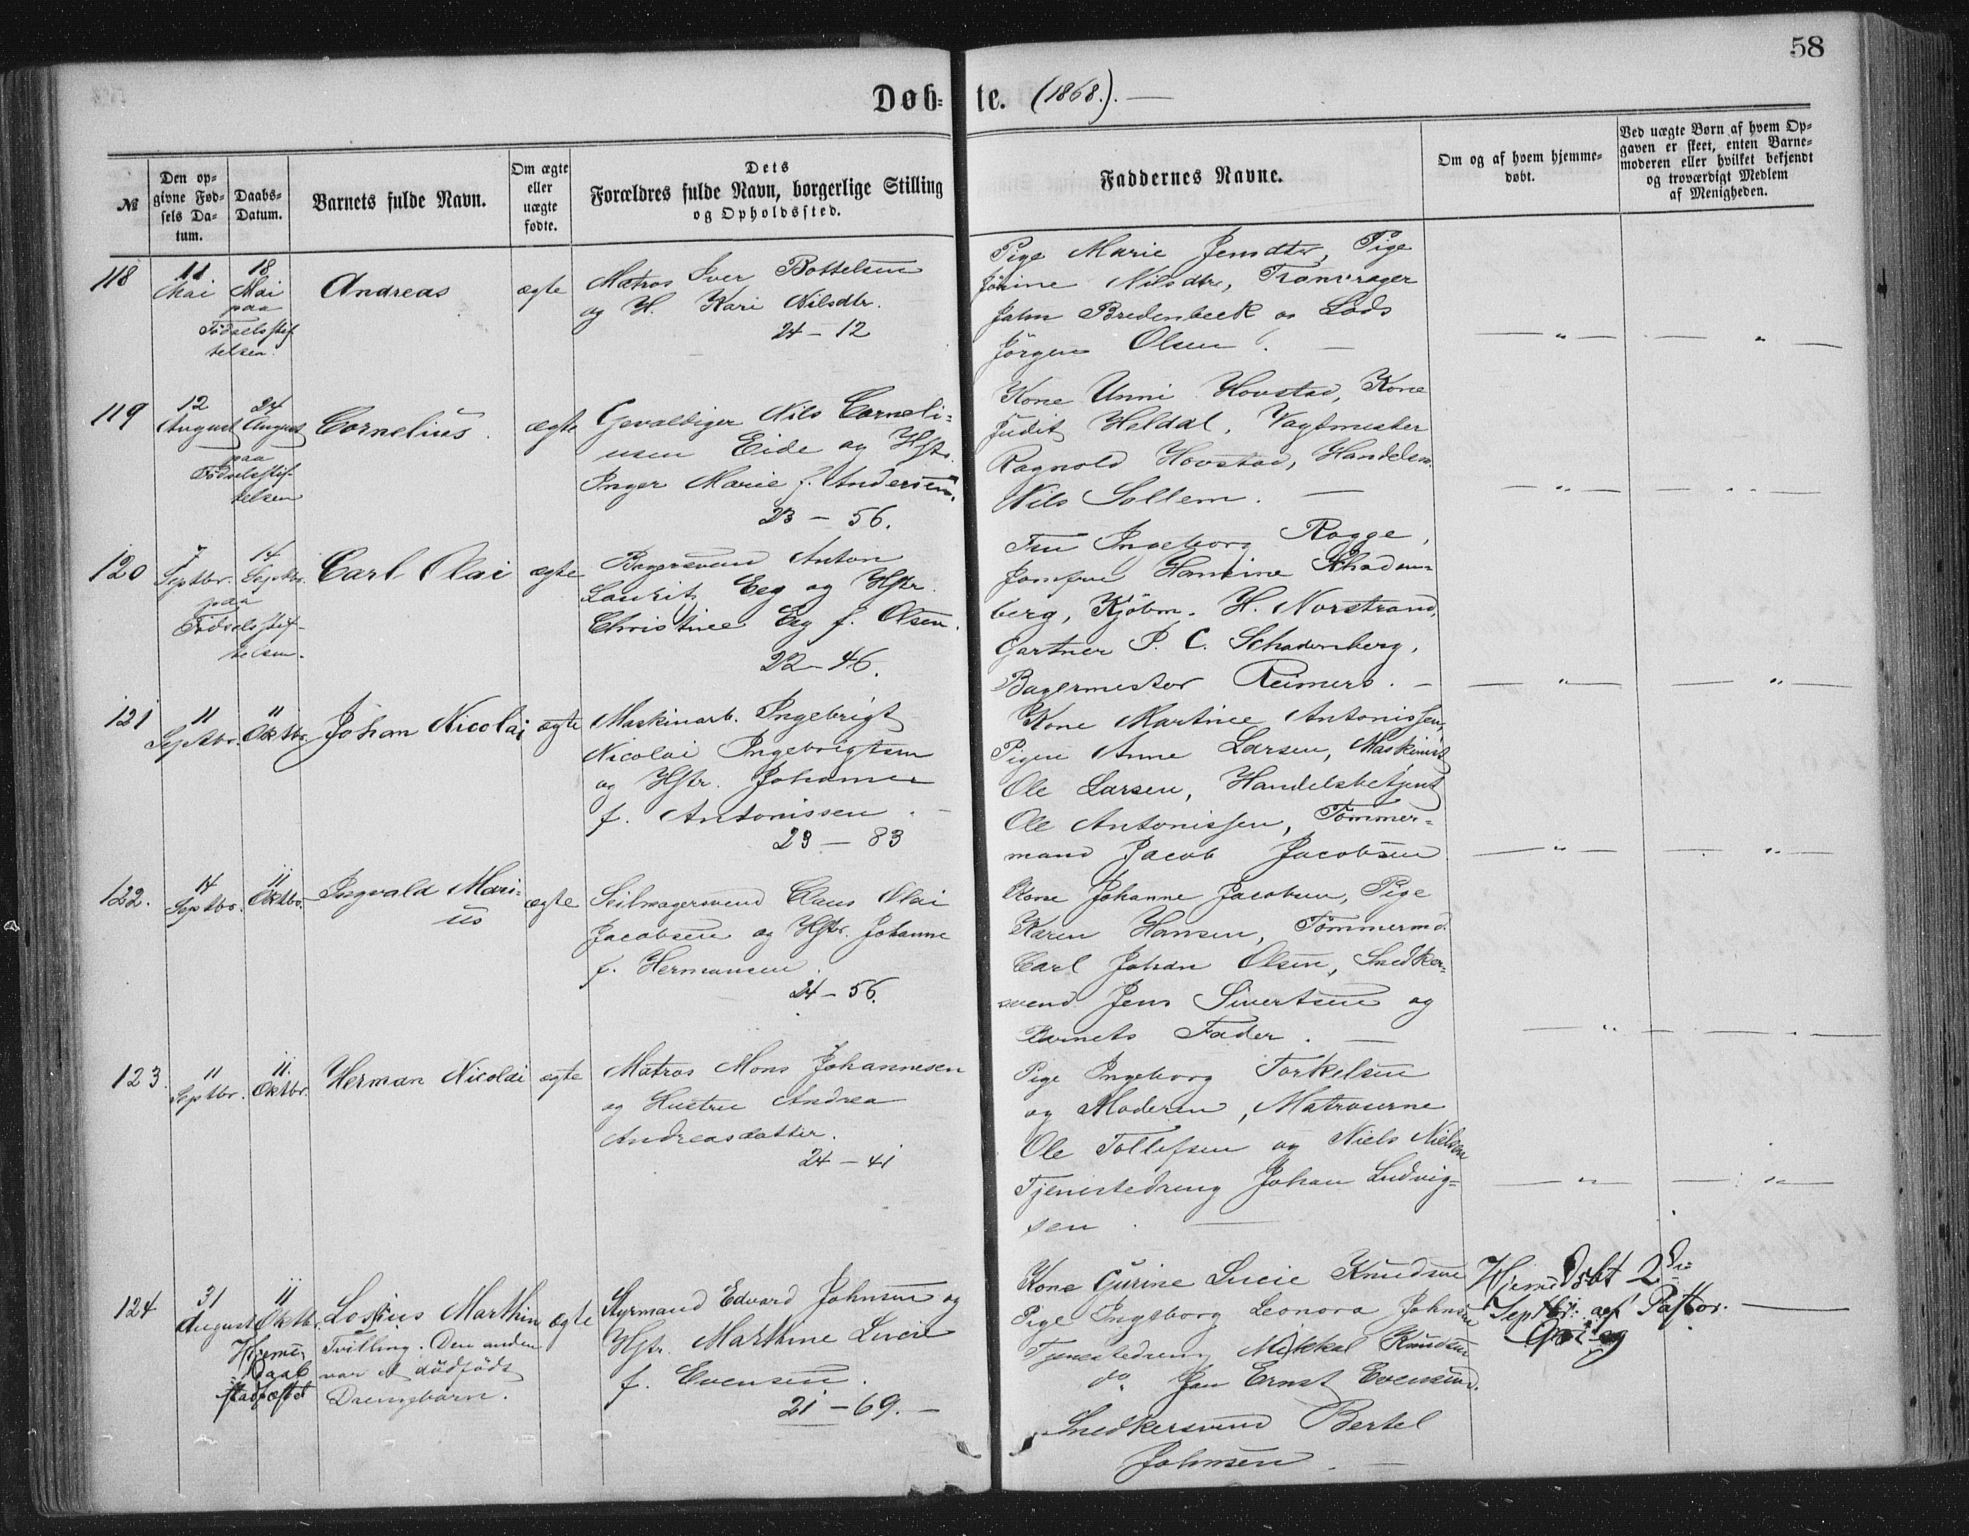 58
Døb- te. (1868.). —
№
Den op-
givne Fød-
sels Da-
tum.
Daabs-
Datum.
Barnets fulde Navn.
Om ægte
eller
uægte
fødte.
Dets
Forældres fulde Navn, borgerlige Stilling
og Opholdssted.
Faddernes Navne.
Om og af hvem hjemme-
døbt.
Ved uægte Børn af hvem Op-
gaven er skeet, enten Barne-
moderen eller hvilket bekjendt
og troværdigt Medlem
af Menigheden.
118
11
Mai
18
Mai
paa
Fødselsstif
telsen.
Andreas
ægte
Matros Iver Bottelsen
og H. Kari Nilsdtr.
24 – 12
Pige Marie Jensdtr, Pige
Nilsdtr, Tranvrager
John Bredenbeck og Lods
Jörgen Olsen. —
— „ —
— „ —
119
12
August
24
August
paa
Födselsstif-
telsen
Cornelius.
ægte
Gevaldiger Nils Corneli-
usen Eide og Hstr.
Inger Marie f. Andersen.
23 – 56.
Kone Unni Hovstad, Kone
Judit Heldal, Vagtmester
Ragnold Hovstad, Handelsm.
Nils Sollem. —
— „ —
— „ —
120
7
Septbr.
14
Septbr.
paa
Födselsstif-
telsen.
Carl Olai
ægte
Bagersvend Anton
Laurits Eeg og Hstr.
Christine Eeg f. Olsen.
22 – 46.
Fru Ingeborg Rogge,
Jomfru Hansine Schaden-
berg, Kjöbm. H. Norstrand,
Gartner P. C. Schadenberg,
Bagermester Reimers. —
— „ —
— „ —
121
11
Septbr.
11
Oktbr.
Johan Nicolai
ægte
Maskinarb. Ingebrigt
Nicolai Ingebrigtsen
og Hstr. Johanne
f. Antonissen. —
23 – 83
Kone Martine Antonissen,
Pigen Anne Larsen, Maskinist
Ole Larsen, Handelsbetjent
Ole Antonissen, Tömmer-
mand Jacob Jacobsen
— „ —
— „ —
122.
14
Septbr.
11
Oktbr.
Ingvald Mari-
us
ægte
Seilmagersvend Claus Olai
Jacobsen og Hstr. Johanne
f. Hermansen.
24 – 56.
Kone Johanne Jacobsen, Pige
Karen Hansen, Tömmermd.
Carl Johan Olsen, Snedker-
svend Jens Sivertsen og
Barnets Fader. —
— „ —
— „ —
123.
11
Septbr.
11.
Oktbr.
Herman Nicolai
ægte
Matros Mons Johannesen
og Hustru Andrea
Andreasdatter.
24 – 41
Pige Ingeborg Torkelsen
og Moderen, Matroserne
Ole Tollefsen og Niels Nielsen
Tjenestedreng Johan Ludvig-
sen. —
— „ —
— „ —
124
31
August
11
Oktbr.
Hjemme-
Daab
stadfæstet
Losius Marthin
Tvilling. Den anden
var et dödfödt
Drengebarn.
ægte
Styrmand Edvard Johnsen og
Hstr. Marthine Lucie
f. Evensen.
21 – 69. —
Kone Gurine Lucie Knudsen
Pige Ingeborg Leonora Johnsen
Tjenestedreng Mikkal Knudsen
do Jan Ernst Evensen.
Snedkersvend Bertel
Johnsen. —
Hjemdöbt 2den
Septbr. af Pastor